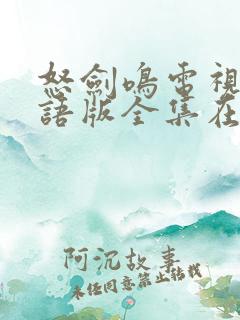 怒劍鳴電視
語版全集在
阿沉故事
未经同意禁止转载